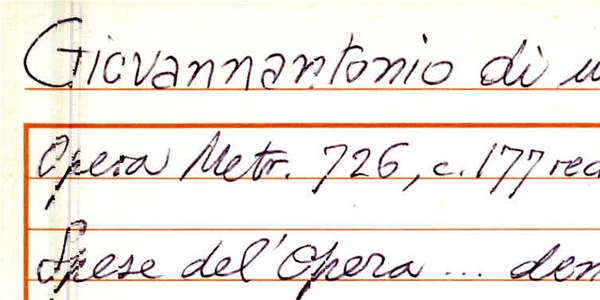 Giovannantonio di
Opera Metr. 726, c. 177 rec
Spese del'Opera ... den